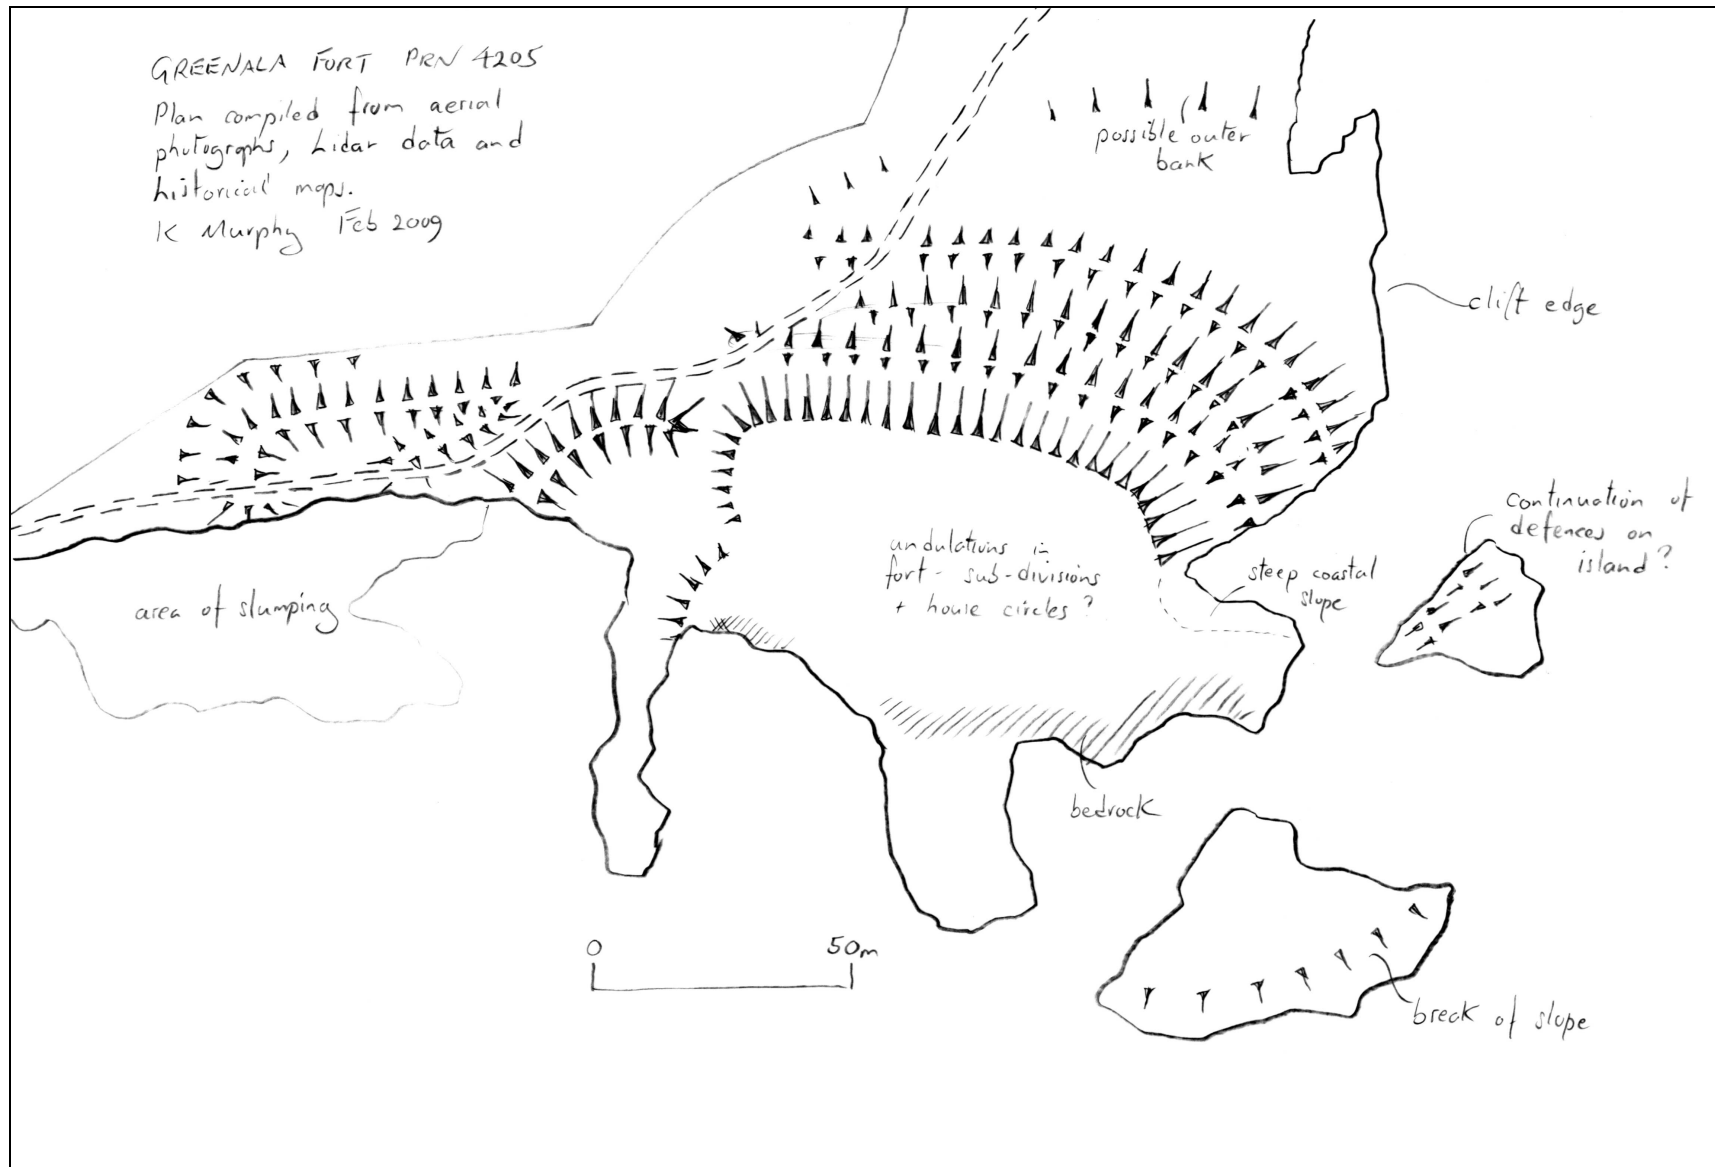 GREENALA FORT PRN 4205
Plan compiled from aerial
photographs, Lidar data and
historical maps.
K Murphy Feb 2009
possible outer
bank
cliff edge
continuation of
defences on
island?
undulations in
fort - sub-divisions
+ house circles?
steep coastal
slope
area of slumping
bedrock
0 50m
break of slope